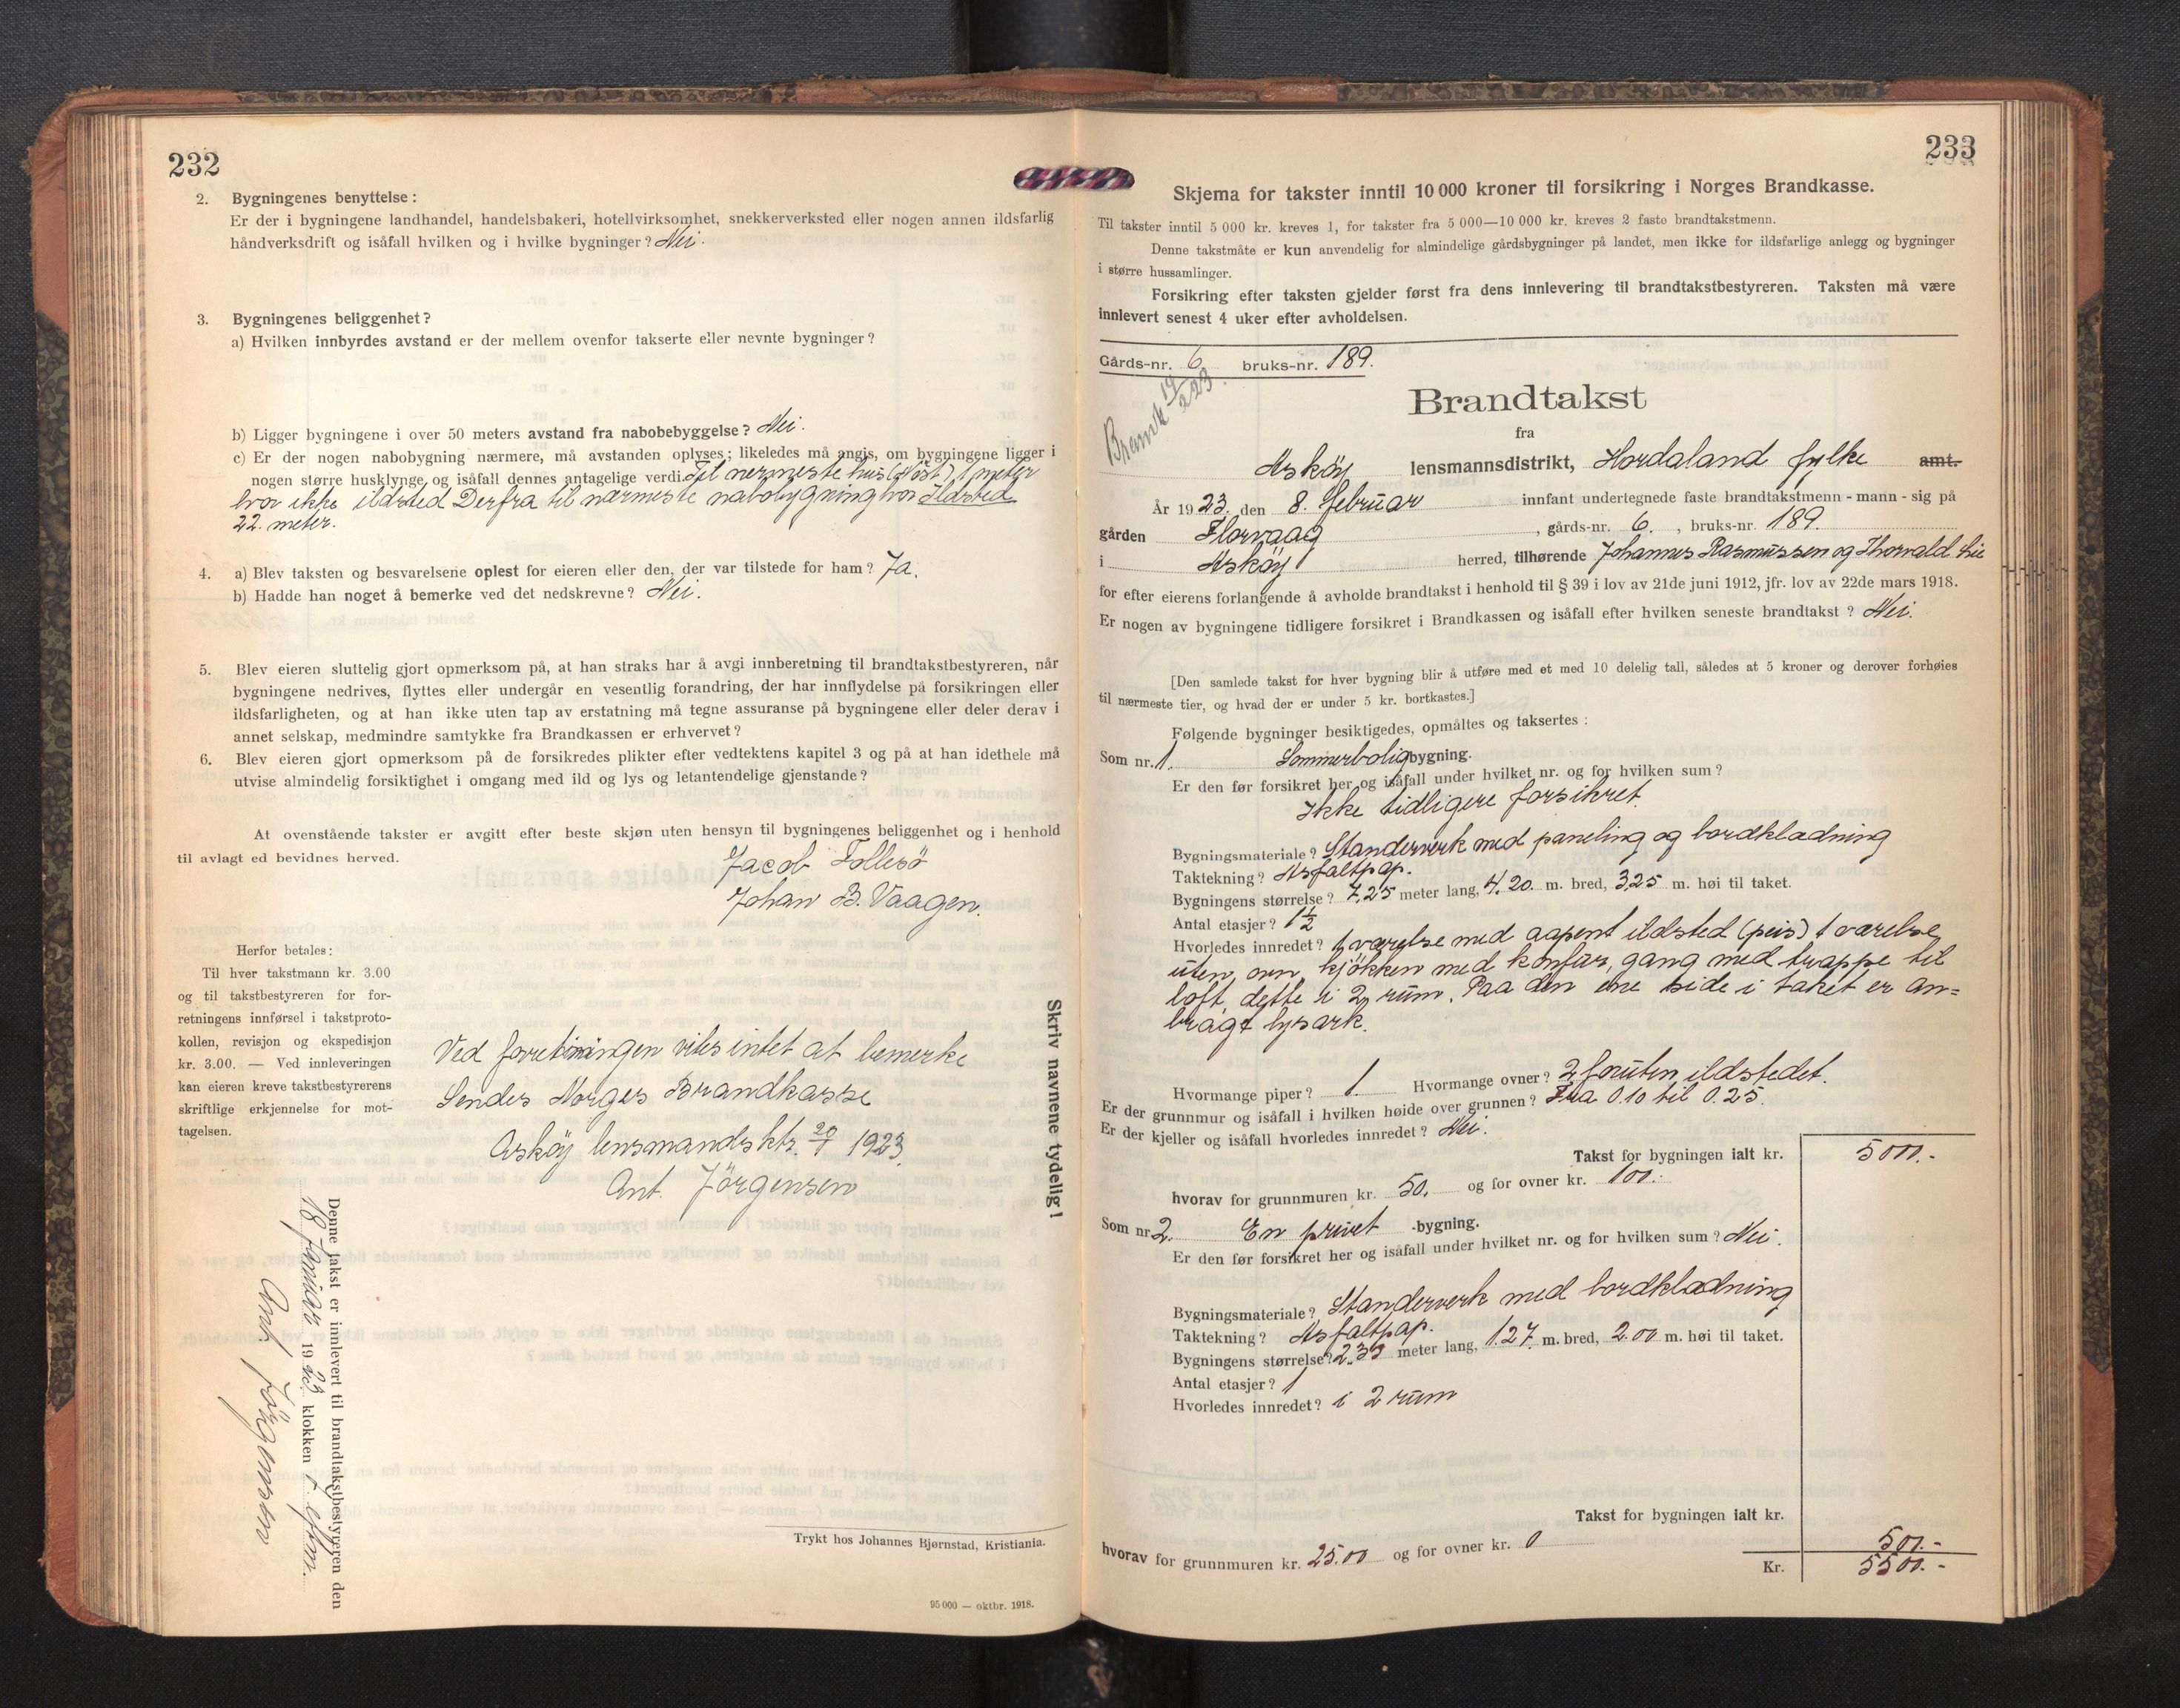 232
2. Bygningenes benyttelse:
Er der i bygningene landhandel, handelsbakeri, hotellvirksomhet, snekkerverksted eller nogen annen ildsfarlig
håndverksdrift og isåfall hvilken og i hvilke bygninger? Nei.
3. Bygningenes beliggenhet?
a) Hvilken innbyrdes avstand er der mellem ovenfor takserte eller nevnte bygninger?
b) Ligger bygningene i over 50 meters avstand fra nabobebyggelse? Nei.
c) Er der nogen nabobygning nærmere, må avstanden oplyses; likeledes må angis, om bygningene ligger i
nogen større husklynge og isåfall dennes antagelige verdi. Til nermeste hus (Nöst) 1 meter
hvor ikke ildsted Derfra til nærmeste nabobygning hvor Ildsted
22. meter.
4. a) Blev taksten og besvarelsene oplest for eieren eller den, der var tilstede for ham? Ja.
b) Hadde han noget å bemerke ved det nedskrevne? Nei.
5. Blev eieren sluttelig gjort opmerksom på, at han straks har å avgi innberetning til brandtakstbestyreren, når
bygningene nedrives, flyttes eller undergår en vesentlig forandring, der har innflydelse på forsikringen eller
ildsfarligheten, og at han ikke uten tap av erstatning må tegne assuranse på bygningene eller deler derav i
annet selskap, medmindre samtykke fra Brandkassen er erhvervet?
6. Blev eieren gjort opmerksom på de forsikredes plikter efter vedtektens kapitel 3 og på at han idethele må
utvise almindelig forsiktighet i omgang med ild og lys og letantendelige gjenstande?
At ovenstående takster er avgitt efter beste skjøn uten hensyn til bygningenes beliggenhet og i henhold
til avlagt ed bevidnes herved.
Jacob Follesö
Johan B. Vaagen.
Herfor betales:
Til hver takstmann kr. 3.00
og til takstbestyreren for for-
retningens innførsel i takstproto-
kollen, revisjon og ekspedisjon
kr. 3.00. — Ved innleveringen
kan eieren kreve takstbestyrerens
skriftlige erkjennelse for mot-
tagelsen.
Ved forretningen vites intet at bemerke
Sendes Norges Brandkasse
Asköy lensmandsktr. 20/1 1923.
Ant. Jörgensen
Skriv navnene tydelig!
Denne takst er innlevert til brandtakstbestyreren den
18 januar 1923 klokken 1 eftm.
Ant Jörgensen
Trykt hos Johannes Bjørnstad, Kristiania.
95 000 — oktbr. 1918.
233
Skjema for takster inntil 10 000 kroner til forsikring i Norges Brandkasse.
Til takster inntil 5 000 kr. kreves 1, for takster fra 5 000—10 000 kr. kreves 2 faste brandtakstmenn.
Denne takstmåte er kun anvendelig for almindelige gårdsbygninger på landet, men ikke for ildsfarlige anlegg og bygninger
i større hussamlinger.
Forsikring efter taksten gjelder først fra dens innlevering til brandtakstbestyreren. Taksten må være
innlevert senest 4 uker efter avholdelsen.
Gårds-nr. 6 bruks-nr. 189.
Brandtakst
fra
Asköy lensmannsdistrikt, Hordaland fylke amt.
År 1923. den 8. februar innfant undertegnede faste brandtakstmenn - mann - sig på
gården Florvaag, gårds-nr. 6., bruks-nr. 189
i Asköy herred, tilhørende Johannes Rasmussen og Thorvald Lie
for efter eierens forlangende å avholde brandtakst i henhold til § 39 i lov av 21de juni 1912, jfr. lov av 22de mars 1918.
Er nogen av bygningene tidligere forsikret i Brandkassen og isåfall efter hvilken seneste brandtakst? Nei.
[Den samlede takst for hver bygning blir å utføre med et med 10 delelig tall, således at 5 kroner og derover forhøies
til nærmeste tier, og hvad der er under 5 kr. bortkastes.]
Følgende bygninger besiktigedes, opmåltes og taksertes:
Som nr. 1. Sommerboligbygning.
Er den før forsikret her og isåfall under hvilket nr. og for hvilken sum?
Ikke tidligere forsikret.
Bygningsmateriale? Standerverk med paneling og bordkladning
Taktekning? Asfaltpap.
Bygningens størrelse? 7,25 meter lang, 4,20 m. bred, 3,25 m. høi til taket.
Antal etasjer? 1½
Hvorledes innredet? 1 værelse med aapent ildsted (peis) 1 værelse
uten ovn, kjökken med komfur, gang med trappe til
loft, dette i 2 rum. Paa den ene side i taket er an=
bragt lysark.
Hvormange piper? 1. Hvormange ovner? 2 foruten ildstedet.
Er der grunnmur og isåfall i hvilken høide over grunnen? Fra 0.10 til 0.25.
Er der kjeller og isåfall hvorledes innredet? Nei.
Takst for bygningen ialt kr. 5000.-
hvorav for grunnmuren kr. 50. og for ovner kr. 100.-
Som nr. 2. En privet -bygning.
Er den før forsikret her og isåfall under hvilket nr. og for hvilken sum? Nei.
Bygningsmateriale? Standerverk med bordkladning
Taktekning? Asfaltpap.
Bygningens størrelse? 2.33 meter lang, 1.27 m. bred, 2.00 m. høi til taket.
Antal etasjer? 1
Hvorledes innredet? i 2 rum
Takst for bygningen ialt kr.
500.-
hvorav for grunnmuren kr. 25.00 og for ovner kr. 0
Kr. 5500.-